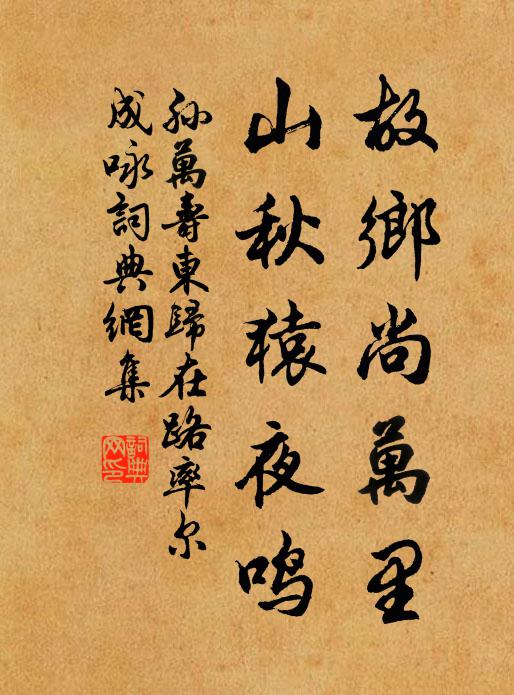 故鄉尚萬里
山秋猿夜鸣
孙萬壽東歸在路率尔
成咏詞典網集
詞典网印